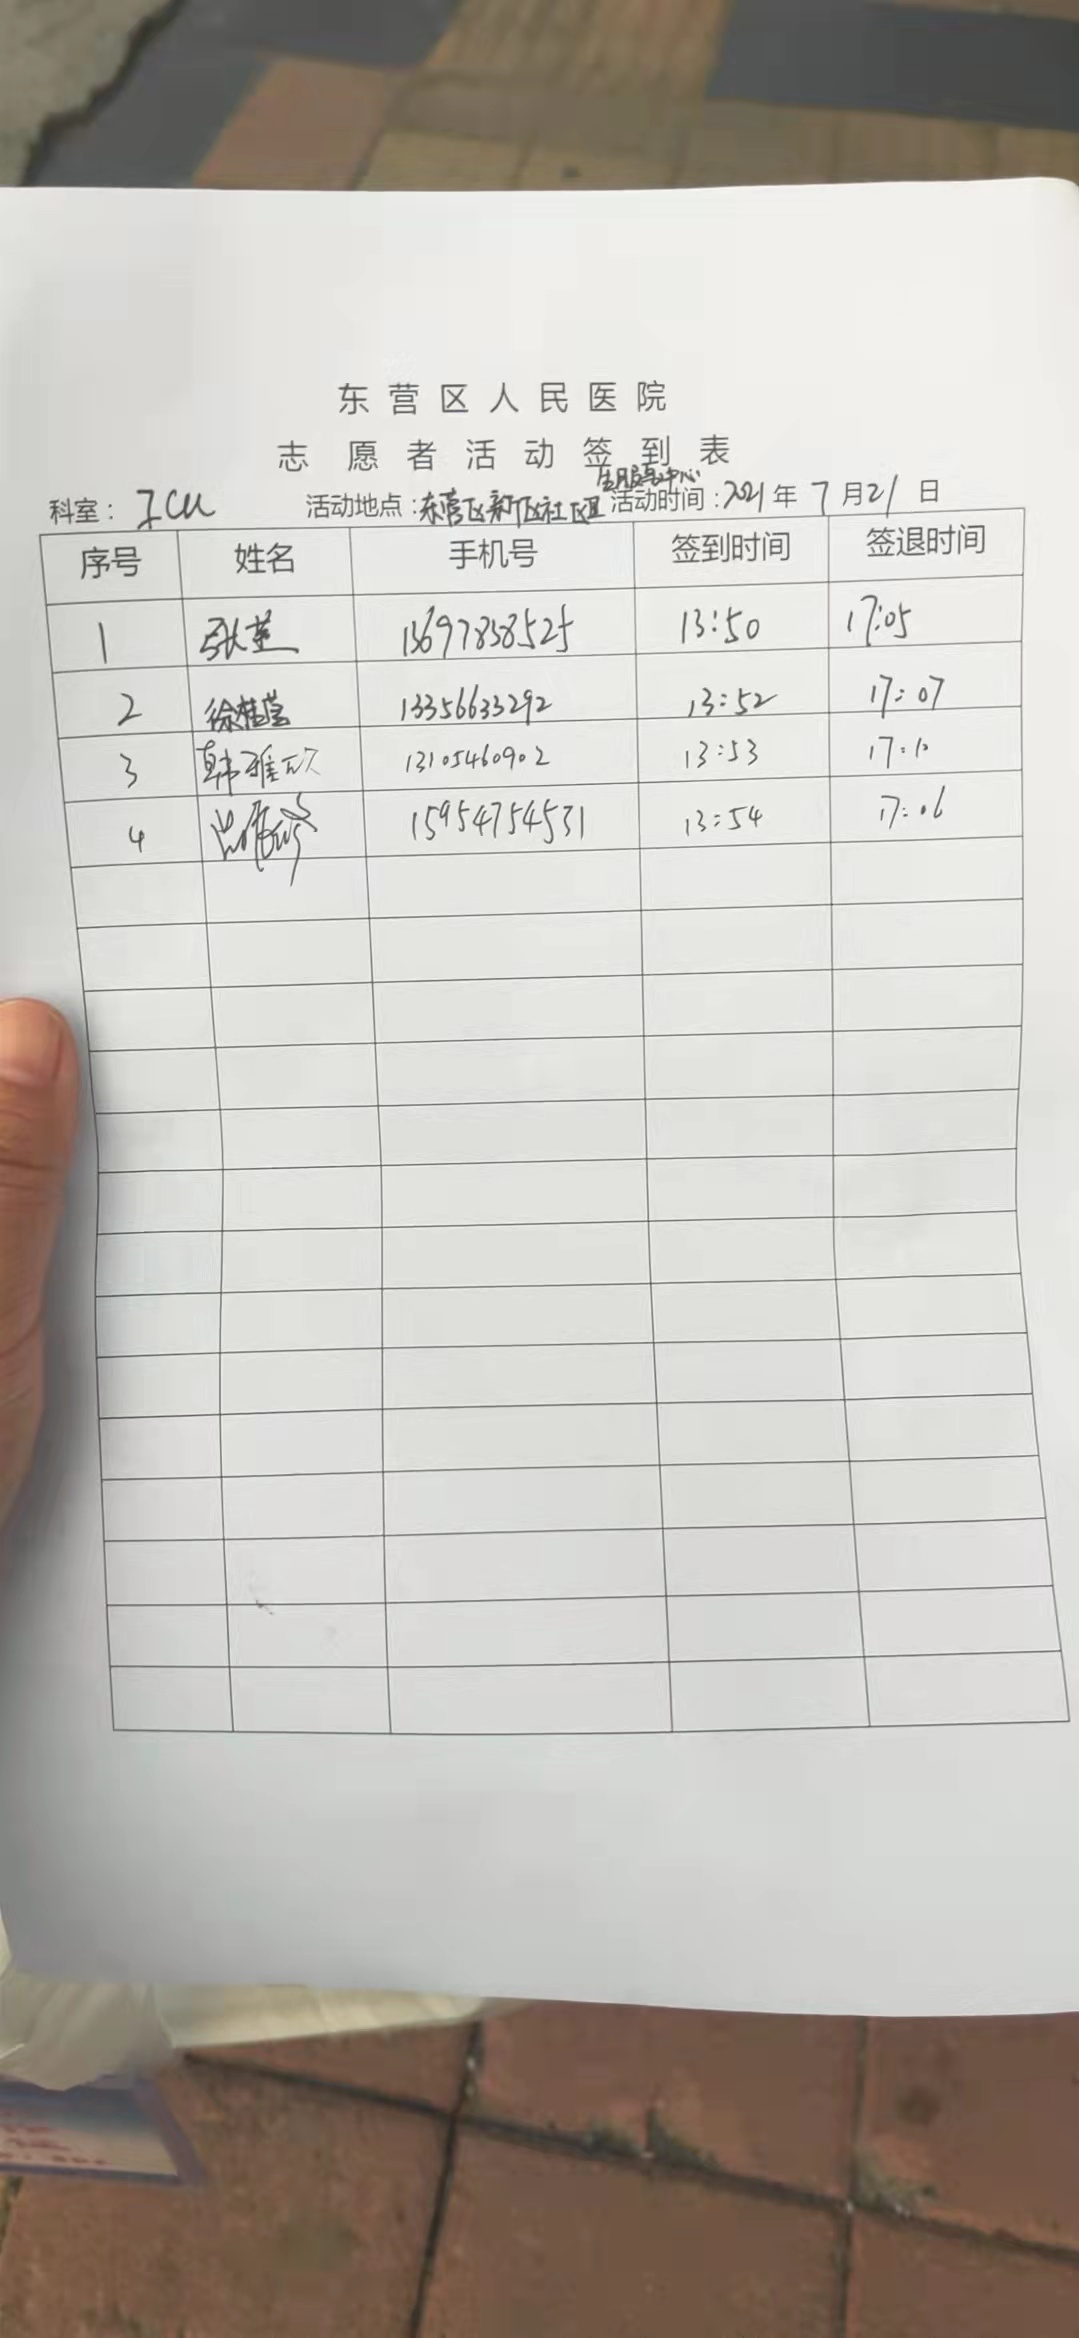 东营区人民医院
志愿者活动签到表
科室：ICU 活动地点：东营区新区社区卫生服务中心 活动时间：2021年7月21日
序号 姓名 手机号 签到时间 签退时间
1 张 13697838525 13:50 17:05
2 徐桂莹 13356633292 13:52 17:07
3 韩雅欣 13105460902 13:53 17:10
4 15954754531 13:54 17:06